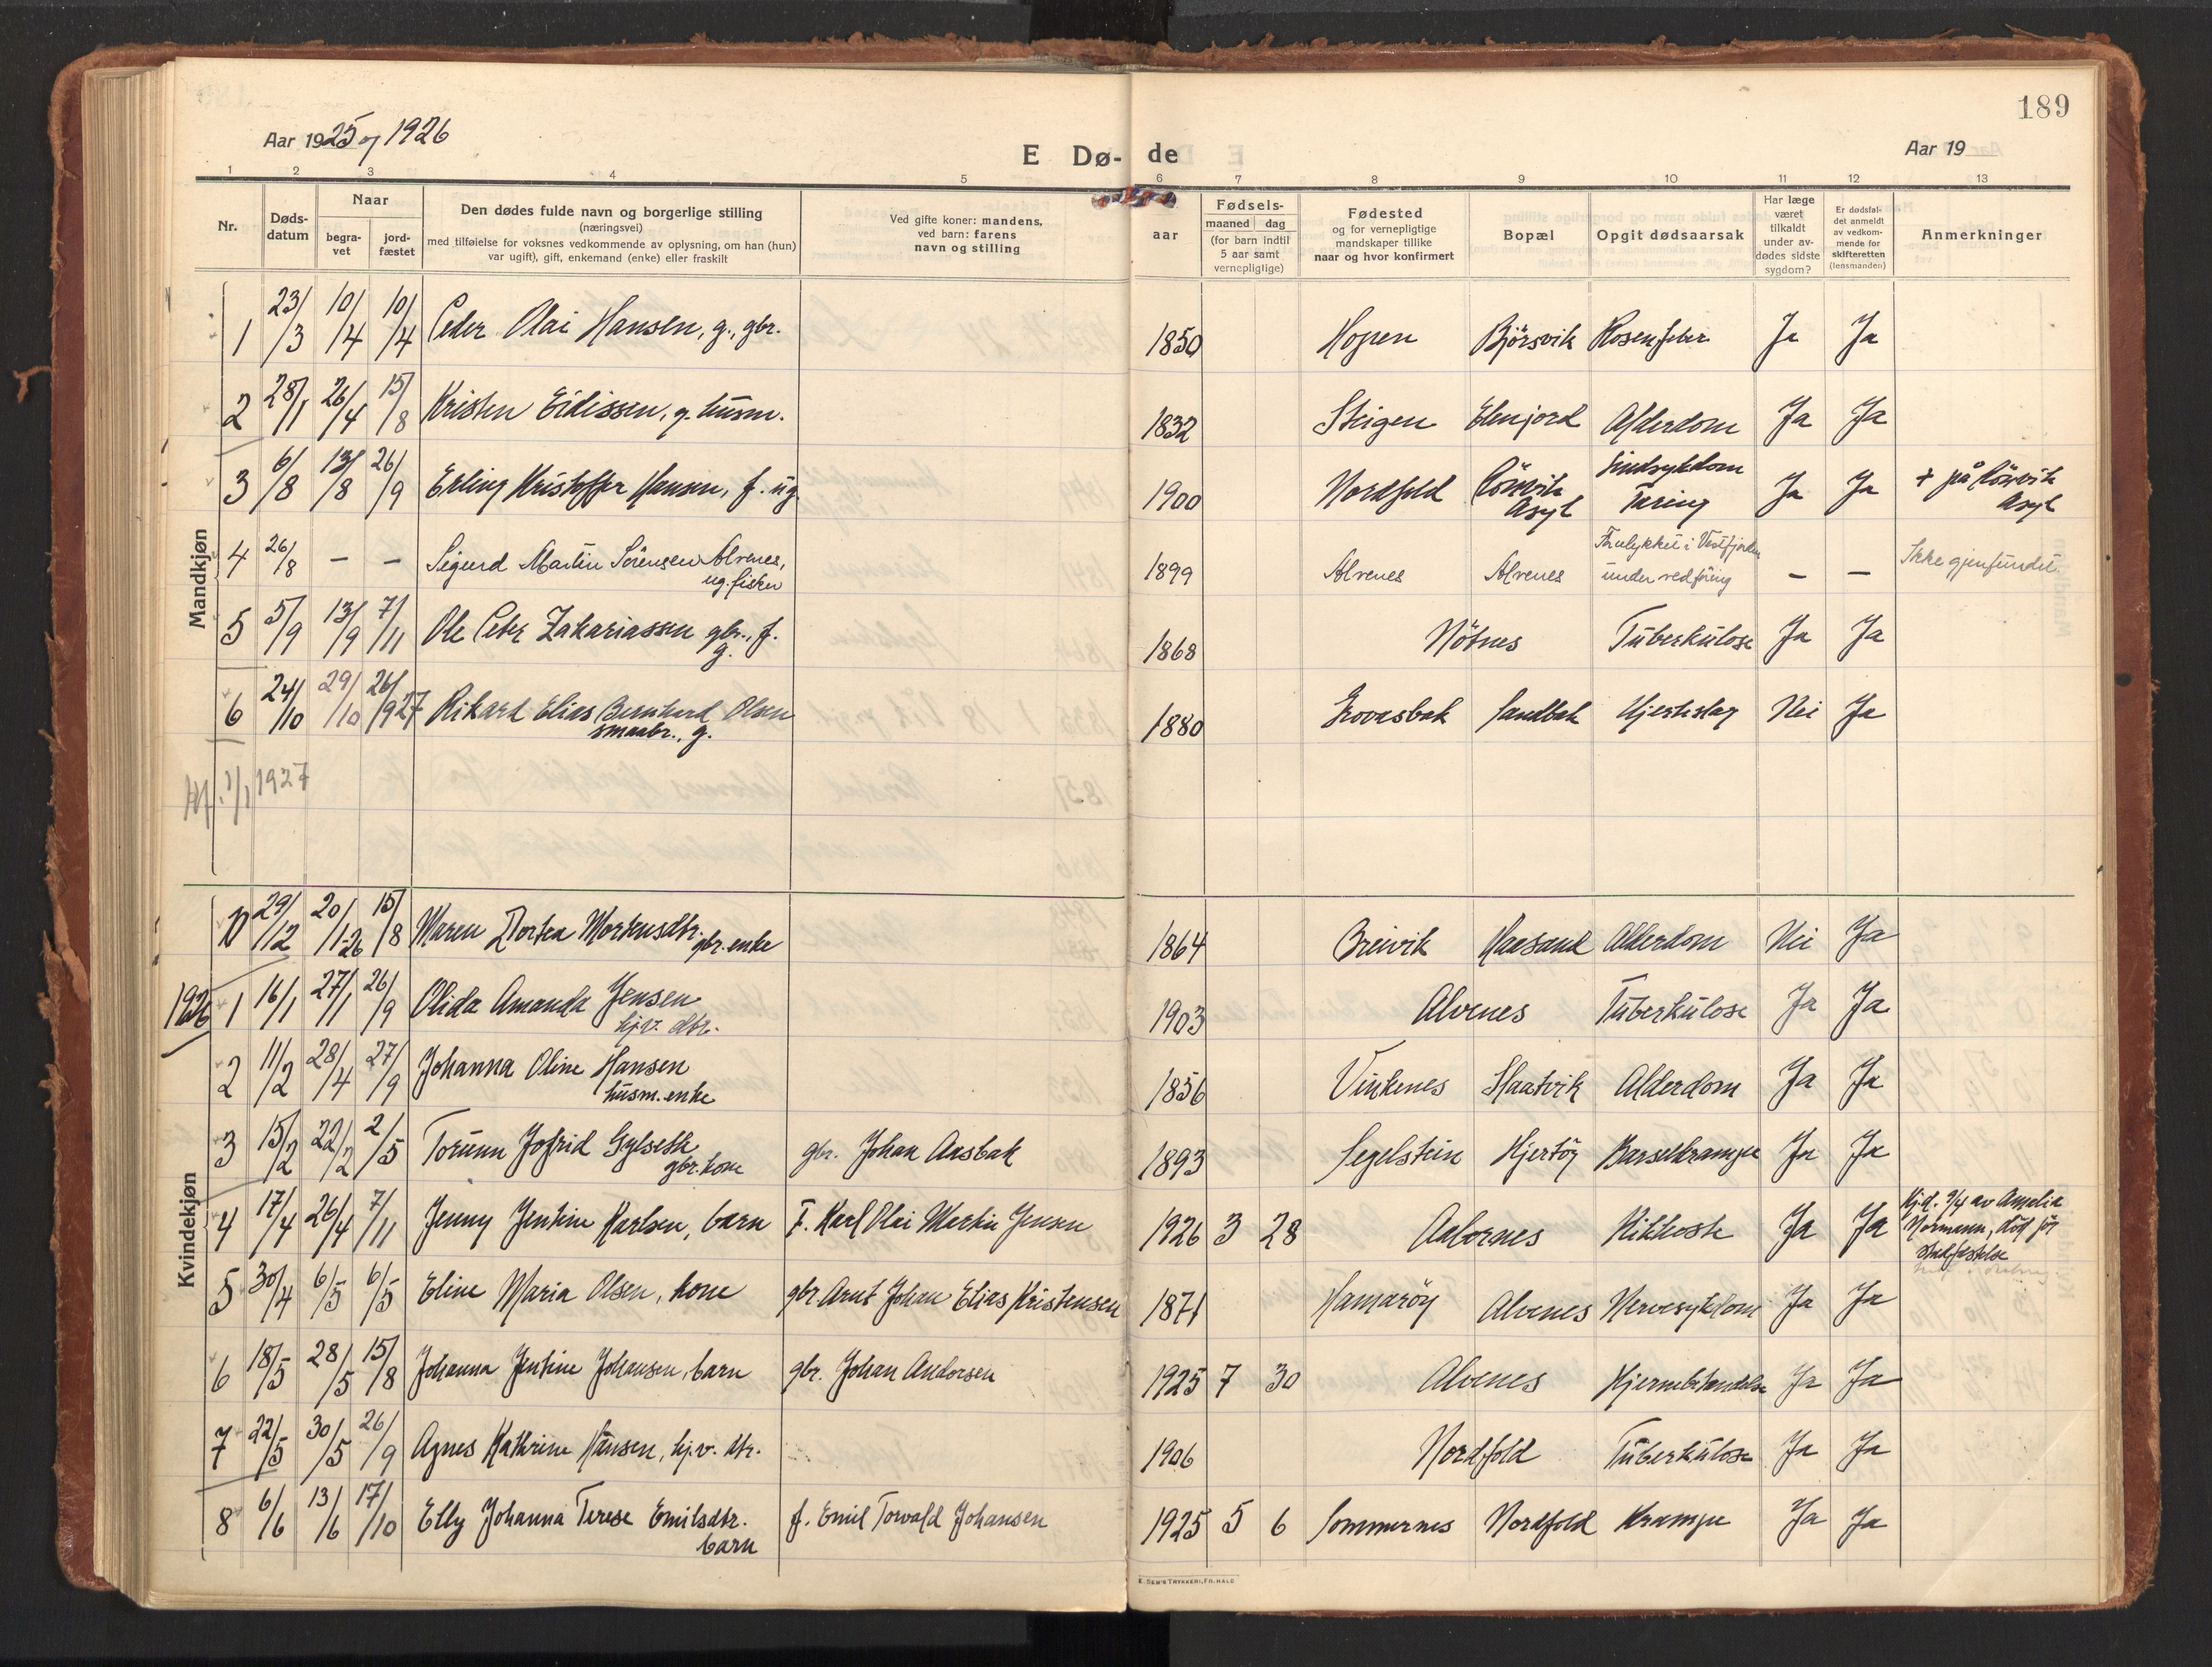 189
Aar 1925 og 1926
E Dø- de
Aar 19
1 2 3 4 5 6 7 8 9 10 11 12 13
Nr.
Døds-
datum
Naar
begra-
vet
jord-
fæstet
Den dødes fulde navn og borgerlige stilling
(næringsvei)
med tilføielse for voksnes vedkommende av oplysning, om han (hun)
var ugift), gift, enkemand (enke) eller fraskilt
Ved gifte koner: mandens,
ved barn: farens
navn og stilling
aar
Fødsels-
maaned dag
(for barn indtil
5 aar samt
vernepligtige)
Fødested
og for vernepligtige
mandskaper tillike
naar og hvor konfirmert
Bopæl
Opgit dødsaarsak
Har læge
været
tilkaldt
under av-
dødes sidste
sygdom?
Er dødsfal-
det anmeldt
av vedkom-
mende for
skifteretten
(lensmanden)
Anmerkninger
Mandkjøn
1 23/3 10/4 10/4 Peder Olai Hansen, g., gbr. 1850 Hopen Bjørsvik Rosenfeber Ja Ja
2 28/1 26/4 15/8 Kristen Eidissen, g. husm. 1832 Steigen Elenjord Alderdom Ja Ja
3 6/8 13/8 26/9 Erling Kristoffer Hansen, f. ug. 1900 Nordfold Rönvik Asyl Sindsykdom Tæring Ja Ja + på Rönvik Asyl
4 26/8 – – Sigurd Martin Sörensen Alvenes, ug. fisker 1899 Alvenes Alvenes Forulykket i Vestfjorden under vedföring – – Ikke gjenfundet.
5 5/9 13/9 7/11 Ole Peter Zakariassen gbr., f. g. 1868 Nötnes Tuberkulose Ja Ja
6 24/10 29/10 26/9 27 Rikard Elias Bernhard Olsen smaabr., g. 1880 Grovasbak Sandbak Hjerteslag Nei Ja
1/1 1927
Kvindekjøn
10 29/12 20/1-26 15/8 Maren Dortea Mortensdtr. gbr. enke 1864 Breivik Haasand Alderdom Nei Ja
1926 1 16/1 27/1 26/9 Olida Amanda Jensen hj.v. dtr. 1903 Alvenes Tuberkulose Ja Ja
2 11/2 28/4 27/9 Johanna Oline Hansen husm. enke 1856 Vinkenes Slaatvik Alderdom Ja Ja
3 15/2 22/2 2/5 Torunn Jofrid Gylseth gbr. kone gbr. Johan Aasbak 1893 Segelstein Hjertöy Barselkrampe Ja Ja
4 17/4 26/4 7/11 Jenny Jentine Karlsen, barn F. Karl Olai Martin Jensen 1926 3 28 Aalvernes Kikhoste Ja Ja Hj.d. 9/4 av Amalia Normann, död för stadfæstelse
5 30/4 6/5 6/5 Eline Maria Olsen, kone gbr Arnt Johan Elias Kristensen 1871 Hamaröy Alvenes Nervesykdom Ja Ja
6 18/5 28/5 15/8 Johanna Jentine Johansen, barn gbr. Johan Andorsen 1925 7 30 Alvenes Hjernebetændelse Ja Ja
7 22/5 30/5 26/9 Agnes Kathrine Hansen, hj.v. dtr. 1906 Nordfold Tuberkulose Ja Ja
8 6/6 13/6 17/10 Elly Johanna Terese Emilsdtr. barn f. Emil Torvald Johansen 1925 5 6 Sommernes Nordfold Krampe Ja Ja
E. SEM'S TRYKKERI, FR. HALD